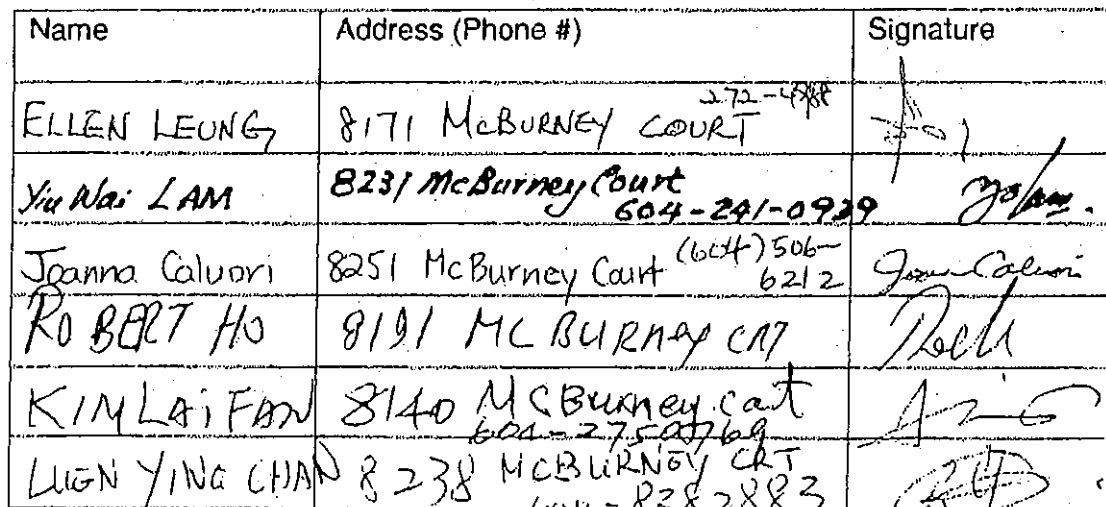 Name Address (Phone #) Signature
ELLEN LEUNG 8171 McBURNEY COURT 272-4788
Yiu Wai LAM 8231 McBurney Court
604-241-0939
Joanna Caluori 8251 McBurney Court (604) 506-
6212
ROBERT HO 8191 MC BURNEY CRT
KIM LAi FAN 8140 McBurney cat
604-2750769
LUEN YING CHAN 8238 McBURNEY CRT
604-8282883